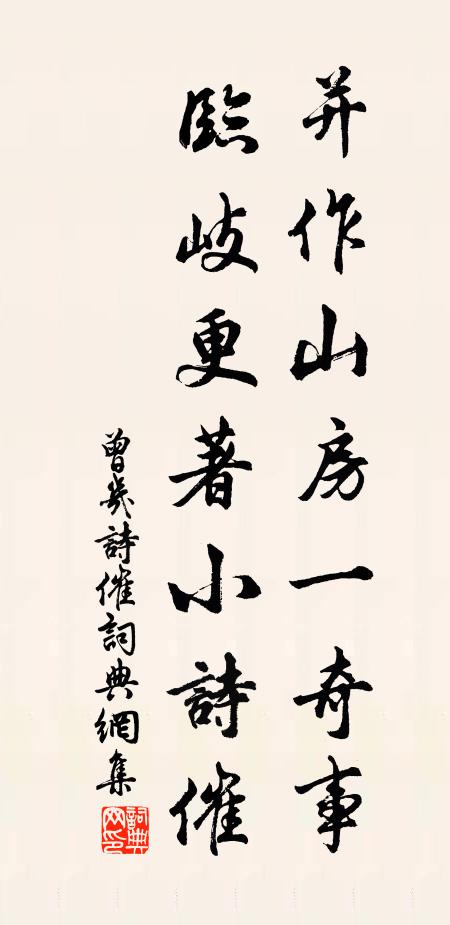 并作山房一奇事
臨岐更著小詩催
曾幾詩催詞典網集
詞典網印